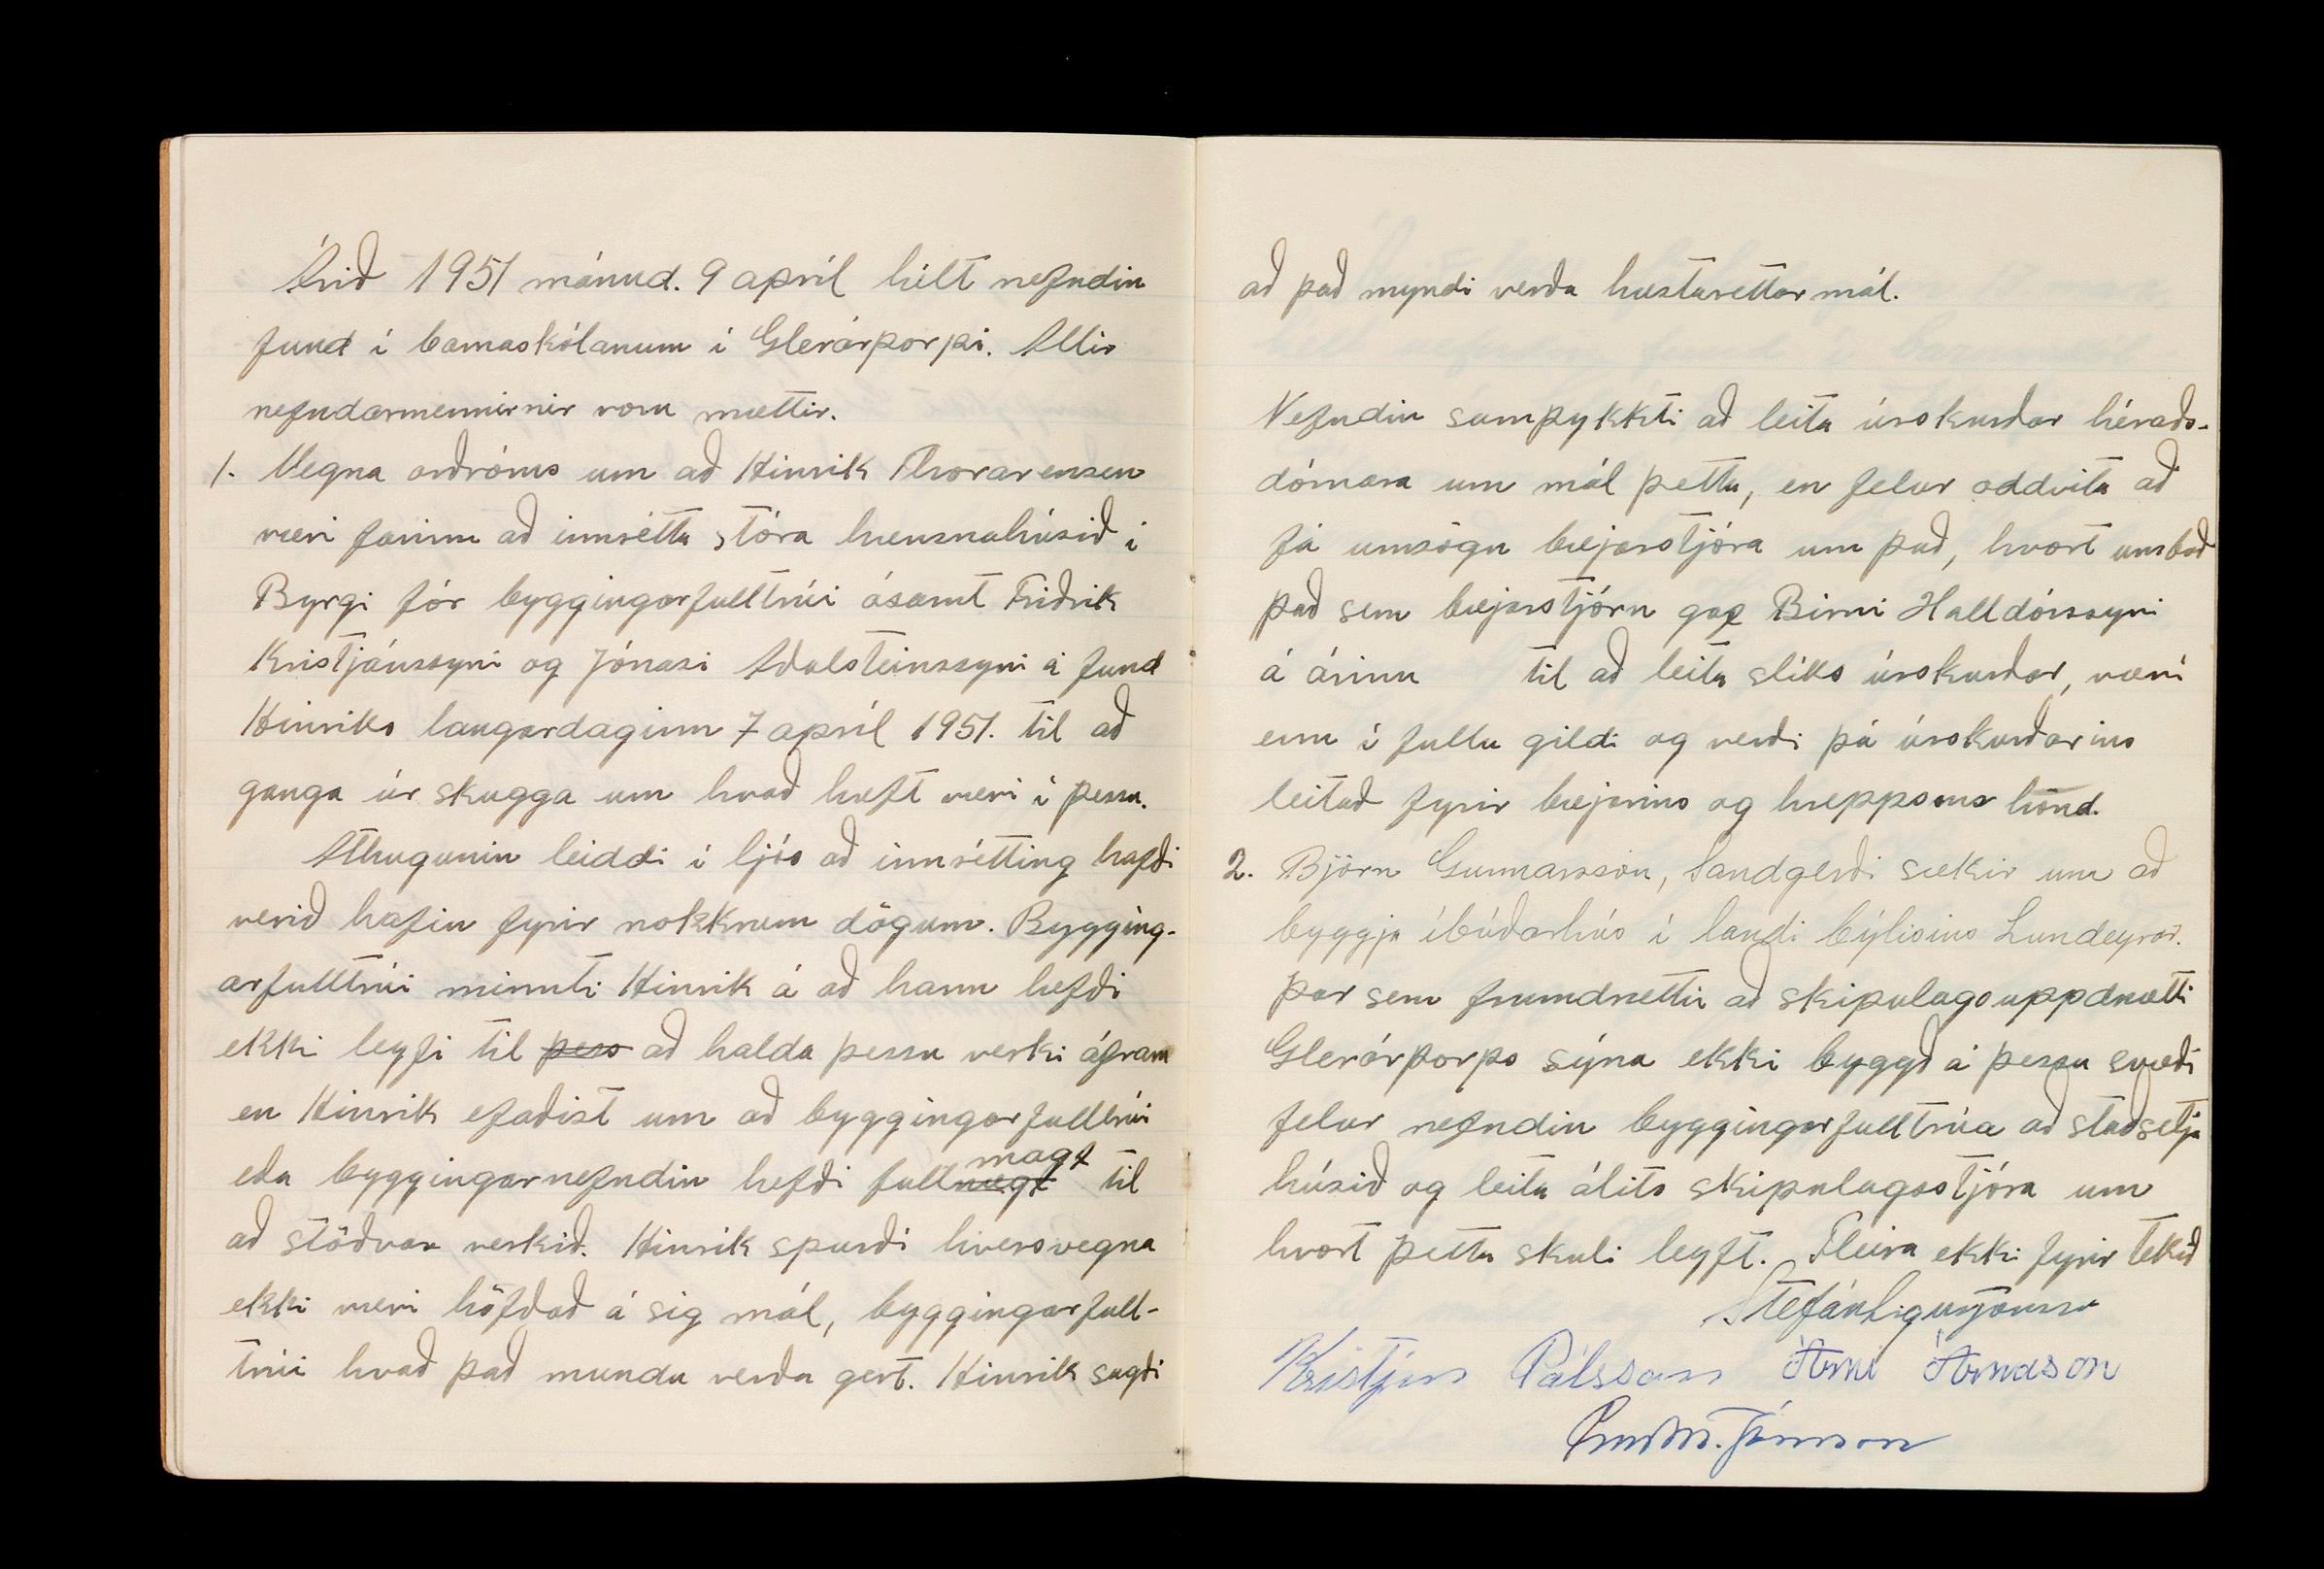 Árið 1951 mánud. 9 apríl hélt nefndin
fund í barnaskólanum í Glerárþorpi. Allir
nefndarmennirnir voru mættir.
1. Vegna orðróms um að Hinrik Thorarensen
væri farinn að innrétta stóra hænsnahúsið í
Byrgi fór byggingarfulltrúi ásamt Friðrik
Kristjánssyni og Jónasi Aðalsteinssyni á fund
Hinriks laugardaginn 7 apríl 1951. til að
ganga úr skugga um hvað hæft væri í þessu.
Athugunin leiddi í ljós að innrétting hafði
verið hafin fyrir nokkrum dögum. Bygging-
arfulltrúi minnti Hinrik á að hann hefði
ekki leyfi til þess að halda þessu verki áfram
en Hinrik efaðist um að byggingarfulltrúi
eða byggingarnefndin hefði fullnægt magt til
að stöðvar verkið. Hinrik spurði hversvegna
ekki væri höfðað á sig mál, byggingarfull-
trúi hvað það mundu verða gert. Hinrik sagði
að það myndi verða hæstaréttar mál.
Nefndin samþykkti að leita úrskurðar héraðs-
dómara um mál þetta, en felur oddvita að
fá umsögn bæjarstjóra um það, hvort umboð
það sem bæjarstjórn gaf Birni Halldórssyni
á árinu til að leita slíks úrskurðar, væri
enn í fullu gildi og verði þá úrskurðarins
leitað fyrir bæjarins og hreppsins hönd.
2. Björn Gunnarsson, Sandgerði sækir um að
byggja íbúðarhús í landi býlisins Lundeyrar.
Þar sem frumdrættir að skipulagsuppdrætti
Glerárþorps sýna ekki byggð á þessu svæði
felur nefndin byggingarfulltrúa að staðsetja
húsið og leita álits skipulagsstjóra um
hvort þetta skuli leyft. Fleira ekki fyrir tekið
Stefán Sigurjónsson
Kristján Pálsson Árni Árnason
Jónsson